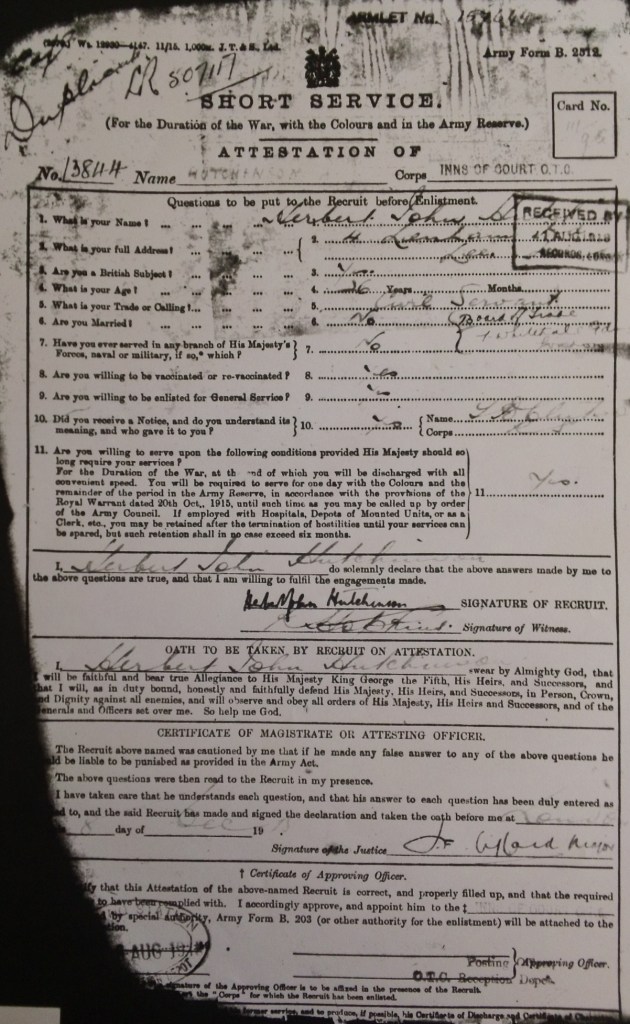 ARMLET No.
Wt. 12930—4147. 11/15. 1,000m. J. T. & S., Ltd.
Army Form B. 2512.
Duplicate
LR 807117
SHORT SERVICE.
Card No.
(For the Duration of the War, with the Colours and in the Army Reserve.)
ATTESTATION OF
No. 13844 Name HUTCHINSON Corps INNS OF COURT O.T.C.
Questions to be put to the Recruit before Enlistment.
RECEIVED BY
1. What is your Name? ... 1. Herbert John
2. What is your full Address? ... 2.
3. Are you a British Subject? ... 3. Yes
4. What is your Age? ... 4. 36 Years Months
5. What is your Trade or Calling? ... 5. Civil Servant
6. Are you Married? ... 6. No (Board of Trade
7. Have you ever served in any branch of His Majesty's Forces, naval or military, if so,* which? 7. No
8. Are you willing to be vaccinated or re-vaccinated? 8. Yes
9. Are you willing to be enlisted for General Service? 9. Yes
10. Did you receive a Notice, and do you understand its meaning, and who gave it to you? 10. Yes Name Corps
11. Are you willing to serve upon the following conditions provided His Majesty should so
long require your services?
For the Duration of the War, at the end of which you will be discharged with all
convenient speed. You will be required to serve for one day with the Colours and the
remainder of the period in the Army Reserve, in accordance with the provisions of the
Royal Warrant dated 20th Oct., 1915, until such time as you may be called up by order
of the Army Council. If employed with Hospitals, Depots of Mounted Units, or as a
Clerk, etc., you may be retained after the termination of hostilities until your services can
be spared, but such retention shall in no case exceed six months.
11 Yes.
I, Herbert John Hutchinson do solemnly declare that the above answers made by me to
the above questions are true, and that I am willing to fulfil the engagements made.
Herbert John Hutchinson SIGNATURE OF RECRUIT.
Signature of Witness.
OATH TO BE TAKEN BY RECRUIT ON ATTESTATION.
I, Herbert John Hutchinson swear by Almighty God, that
I will be faithful and bear true Allegiance to His Majesty King George the Fifth, His Heirs, and Successors, and
that I will, as in duty bound, honestly and faithfully defend His Majesty, His Heirs, and Successors, in Person, Crown,
and Dignity against all enemies, and will observe and obey all orders of His Majesty, His Heirs and Successors, and of the
Generals and Officers set over me. So help me God.
CERTIFICATE OF MAGISTRATE OR ATTESTING OFFICER.
The Recruit above named was cautioned by me that if he made any false answer to any of the above questions he
would be liable to be punished as provided in the Army Act.
The above questions were then read to the Recruit in my presence.
I have taken care that he understands each question, and that his answer to each question has been duly entered as
ed to, and the said Recruit has made and signed the declaration and taken the oath before me at
day of 19
Signature of the Justice
† Certificate of Approving Officer.
fy that this Attestation of the above-named Recruit is correct, and properly filled up, and that the required
to have been complied with. I accordingly approve, and appoint him to the ‡
by special authority, Army Form B. 203 (or other authority for the enlistment) will be attached to the
tion.
AUG 19
Posting
Approving Officer.
O.T.C. Reception Depot
signature of the Approving Officer is to be affixed in the presence of the Recruit.
the "Corps" for which the Recruit has been enlisted.
former service, and to produce, if possible, his Certificate of Discharge and Certificate of